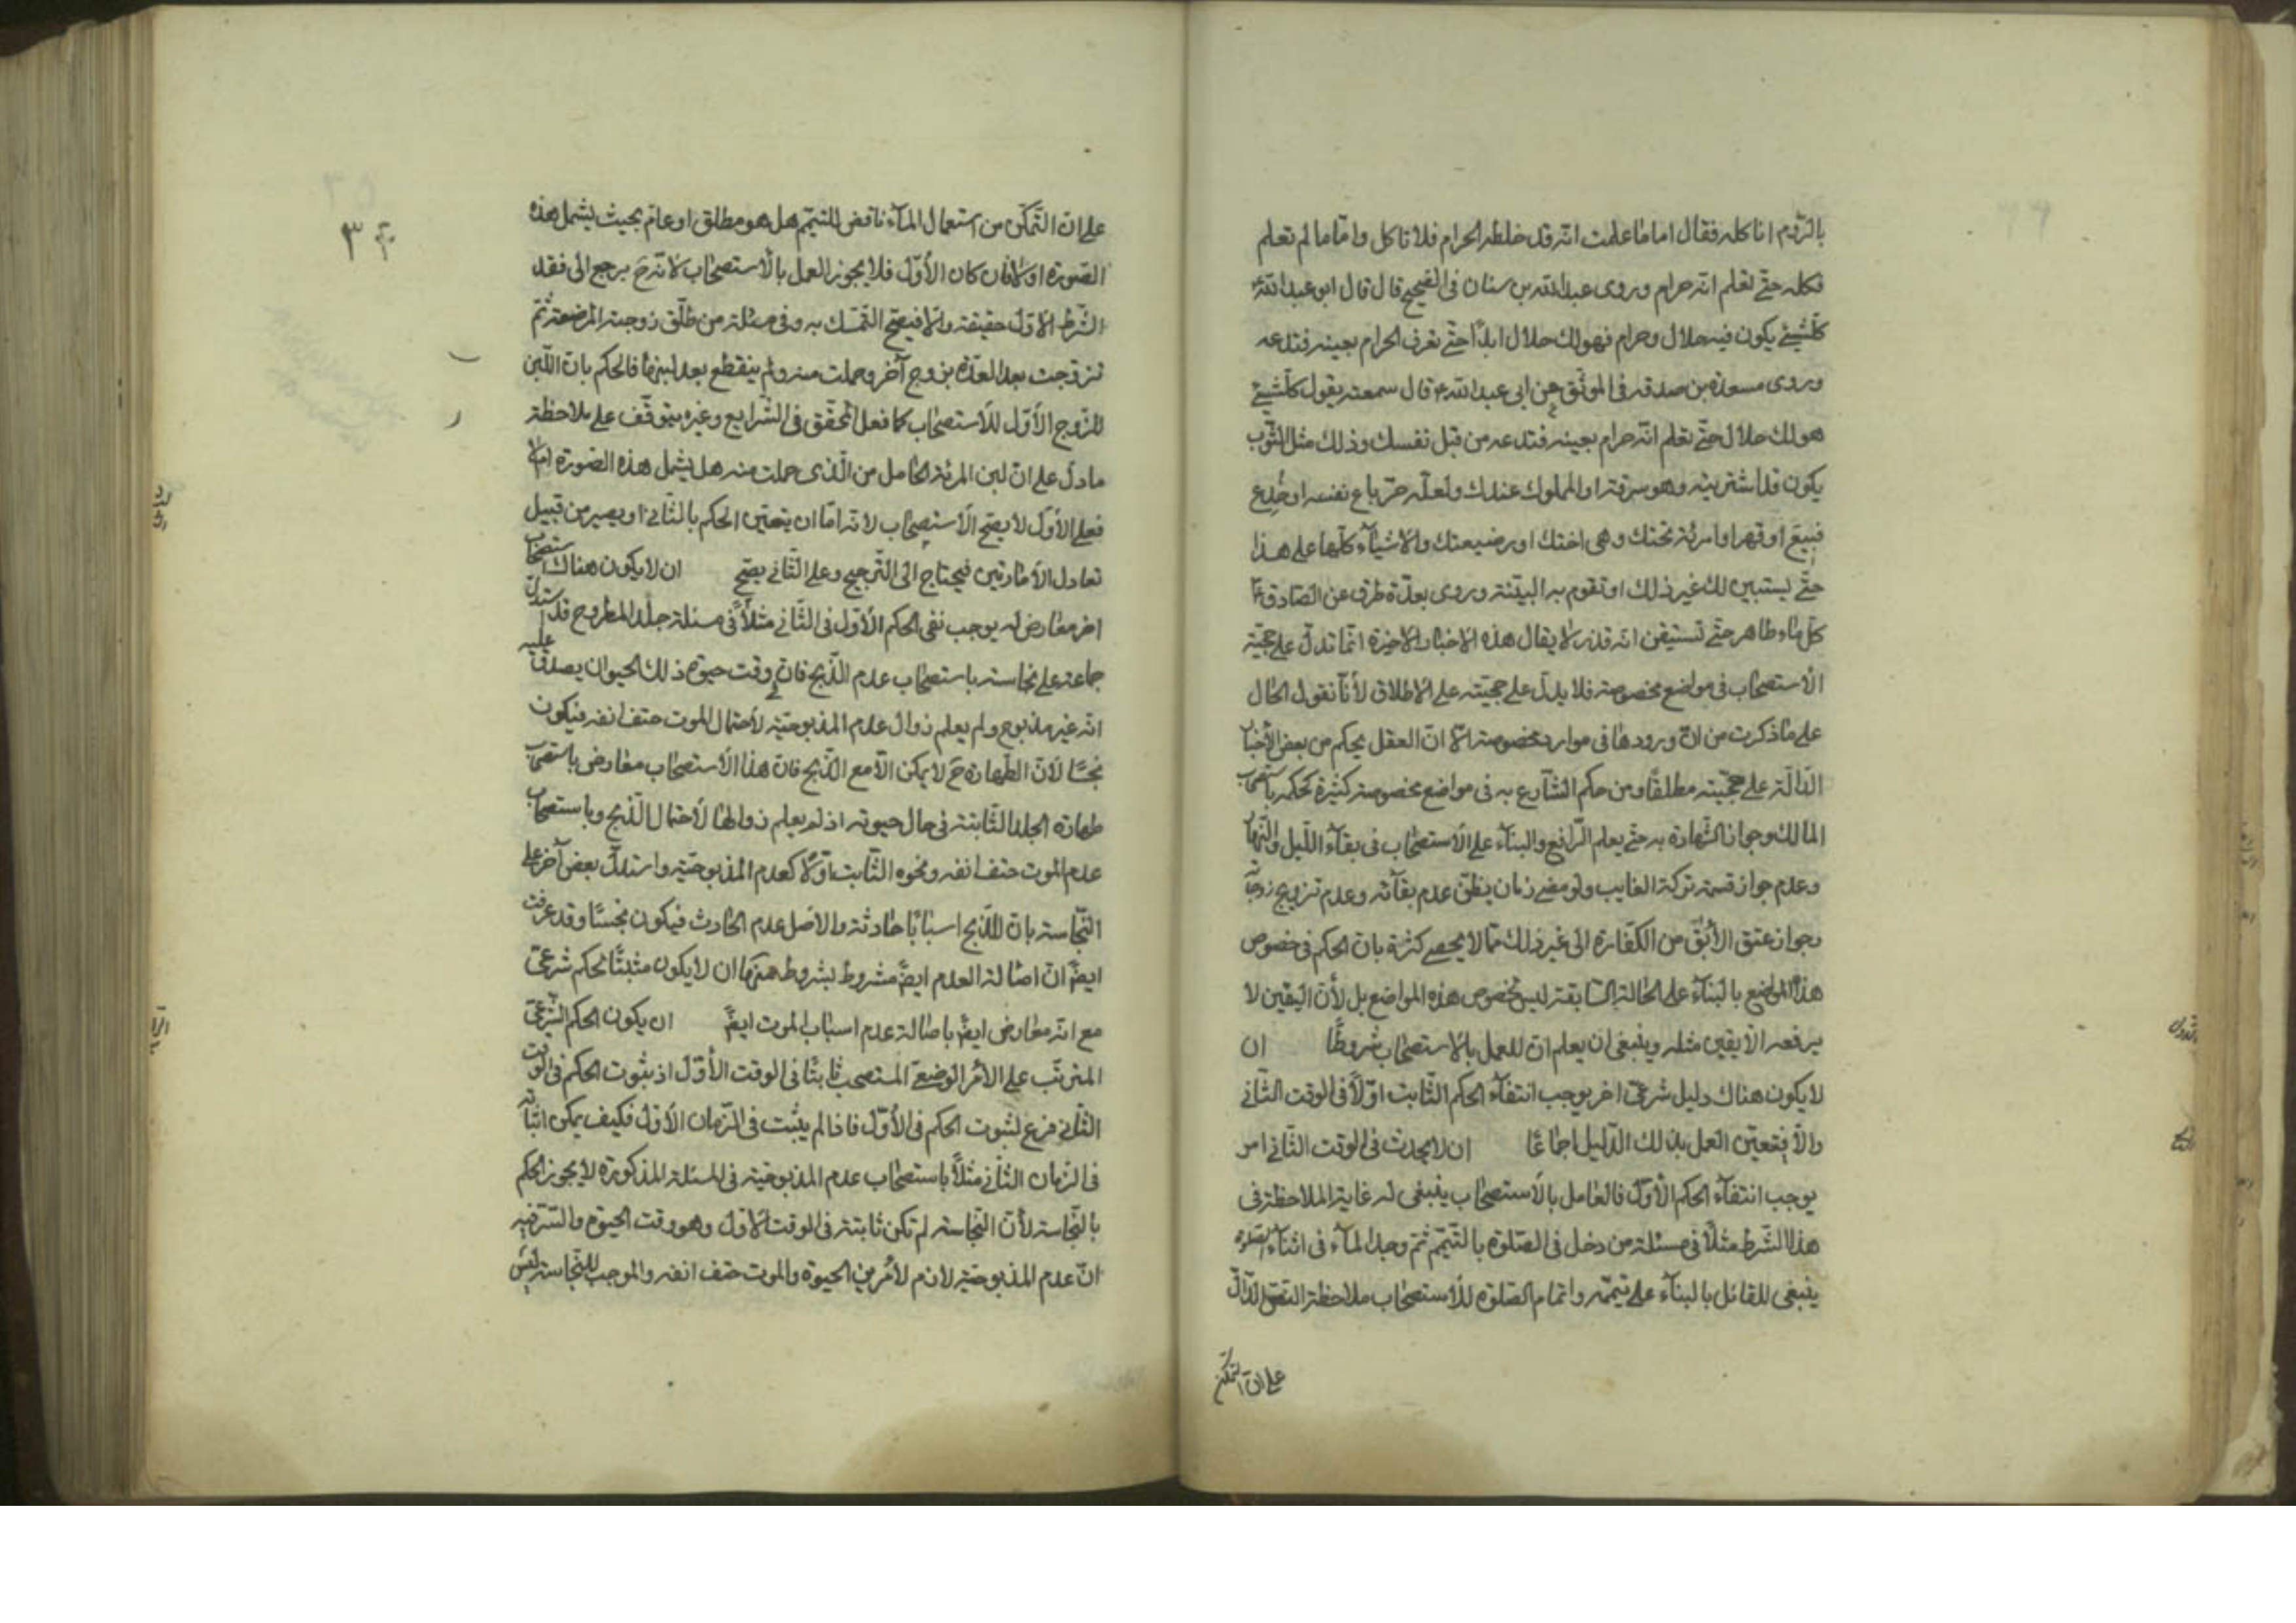 بالرّوم اناكله فقال اما ما علمت انّه قد خلطه الحرام فلا تاكل وامّا ما لم تعلم
فكله حتّى تعلم انّه حرام وروى عبدالله بن سنان فى الصّحيح قال قال ابو عبدالله ع
كلّ شيئ يكون فيه حلال وحرام فهو لك حلال ابدًا حتّى تعرف الحرام بعينه فتدعه
وروى مسعدة بن صدقه فى الموثّق عن ابى عبدالله ع قال سمعته يقول كلّ شيئ
هو لك حلال حتّى تعلم انّه حرام بعينه فتدعه من قبل نفسك وذلك مثل الثّوب
يكون قد اشتريته وهو سرقة او المملوك عندك ولعلّه حرّ باع نفسه او خُدع
فبيع او قهر او امرئة تحتك وهى اختك او رضيعتك والاشيآء كلّها على هذا
حتّى يستبين لك غير ذلك او تقوم به البيّنة وروى بعدّة طرق عن الصّادق ع
كلّ مٰاء طاهر حتّى تستيقن انّه قذر لا يقال هذه الاخبار الاخيرة انّما تدلّ على حجيّة
الأستصحٰاب فى مواضع مخصوصة فلا يدلّ على حجيّته على الاطلاق لأنّا نقول الحٰال
على مٰا ذكرت من انّ ورودهٰا فى موارد مخصوصة الّا انّ العقل يحكم من بعض الأخبٰار
الدّالّة على حجيّته مطلقًا ومن حكم الشّارع به فى مواضع مخصوصة كثيرة كحكمه باستصحٰاب
المالك وجواز الشّهادة به حتّى يعلم الرّافع والبنآء على الاستصحٰاب فى بقآء اللّيل والنّهٰار
وعدم جواز قسمة تركة الغايب ولو مضى زمان يظنّ عدم بقآئه وعدم تزويج زوجاته
وجواز عتق الأبق من الكفّارة الى غير ذلك ممّا لا يحصى كثرة بانّ الحكم فى خصوص
هذه المواضع بالبنآء على الحٰالة السّابقة ليس لخصوص هذه المواضع بل لأنّ اليقين لا
يرفعه الّا يقين مثله وينبغى ان يعلم انّ للعمل بالاستصحٰاب شروطًا ان
لا يكون هناك دليل شرعىّ اخر يوجب انتفآء الحكم الثّابت اوّلًا فى الوقت الثّانى
والّا فيتعيّن العمل بذلك الدّليل اجمٰاعًا ان لا يحدث فى الوقت الثّانى امر
يوجب انتفآء الحكم الأوّل فالعٰامل بالأستصحٰاب ينبغى له غاية الملاحظة فى
هذا الشّرط مثلًا فى مسئلة من دخل فى الصّلوة بالتّيمّم ثمّ وجد المآء فى اثنآء الصّلوة
ينبغى للقائل بالبنآء على تيمّمه واتمام الصّلوة للأستصحٰاب ملاحظة النّصّ الدّالّ
على انّ التمكّن
على انّ التّمكّن من استعمال المآء ناقض للتيمّم هل هو مطلق او عامّ بحيث يشمل هذه
الصّورة او لا فان كان الأوّل فلا يجوز العمل بالأستصحٰاب لانّه ح يرجع الى فقد
الشّرط الاوّل حقيقة والّا فيصحّ التّمسّك به وفى مسئلة من طلّق زوجته المرضعة ثمّ
تزوّجت بعد العدّة بزوج آخر وحملت منه ولم ينقطع بعد لبنهٰا فالحكم بانّ اللّبن
للزّوج الأوّل للأستصحٰاب كما فعل المحقّق فى الشّرايع وغيره يتوقّف على ملاحظة
ما دلّ على انّ لبن المرئة الحٰامل من الّذى حملت منه هل يشمل هذه الصّورة ام لا
فعلى الأوّل لا يصحّ الأستصحٰاب لانّه امّا ان يتعيّن الحكم بالثّانى او يصير من قبيل
تعادل الأمٰارتين فيحتاج الى التّرجيح وعلى الثّانى يصحّ ان لا يكون هناك استصحٰاب
اخر معٰارض له يوجب نفى الحكم الأوّل فى الثّانى مثلًا فى مسئلة جلد المطروح قد استدلّ
جماعة على نجاسته باستصحٰاب عدم الذّبح فانّ فى وقت حيوة ذلك الحيوان يصدق عليه
انّه غير مذبوح ولم يعلم زوال عدم المذبوحيّة لأحتمال الموت حتف انفه فيكون
نجسًا لأنّ الطّهارة ح لا يمكن الّا مع الذّبح فانّ هذا الأستصحٰاب معٰارض باستصحٰاب
طهارة الجلد الثّابتة فى حال حيوته اذ لم يعلم زوالهٰا لأحتمال الذّبح وباستصحٰاب
عدم الموت حتف انفه ونحوه الثّابت اوّلًا كعدم المذبوحيّة واستدلّ بعض آخر على
النّجٰاسة بانّ للذّبح اسبٰابًا حٰادثة والاصل عدم الحٰادث فيكون نجسًا وقد عرفت
ايضً انّ اصٰالة العدم ايضً مشروط بشروط منهٰا ان لا يكون مثبتًا لحكم شرعىّ
مع انّه معٰارض ايضً باصٰالة عدم اسبٰاب الموت ايضً ان يكون الحكم الشّرعىّ
المترتّب على الأمر الوضعىّ المستصحب ثابتًا فى الوقت الأوّل اذ ثبوت الحكم فى الوقت
الثّانى فرع لثبوت الحكم فى الأوّل فاذا لم يثبت فى الزّمان الأوّل فكيف يمكن اثباته
فى الزمان الثّانى مثلًا باستصحٰاب عدم المذبوحيّة فى المسئلة المذكورة لا يجوز الحكم
بالنّجٰاسة لأنّ النّجٰاسة لم تكن ثابتة فى الوقت الأوّل وهو وقت الحيوة والسّرّ فيه
انّ عدم المذبوحيّة لازم لأمرين الحيوة والموت حتف انفه والموجب للنّجاسة ليس